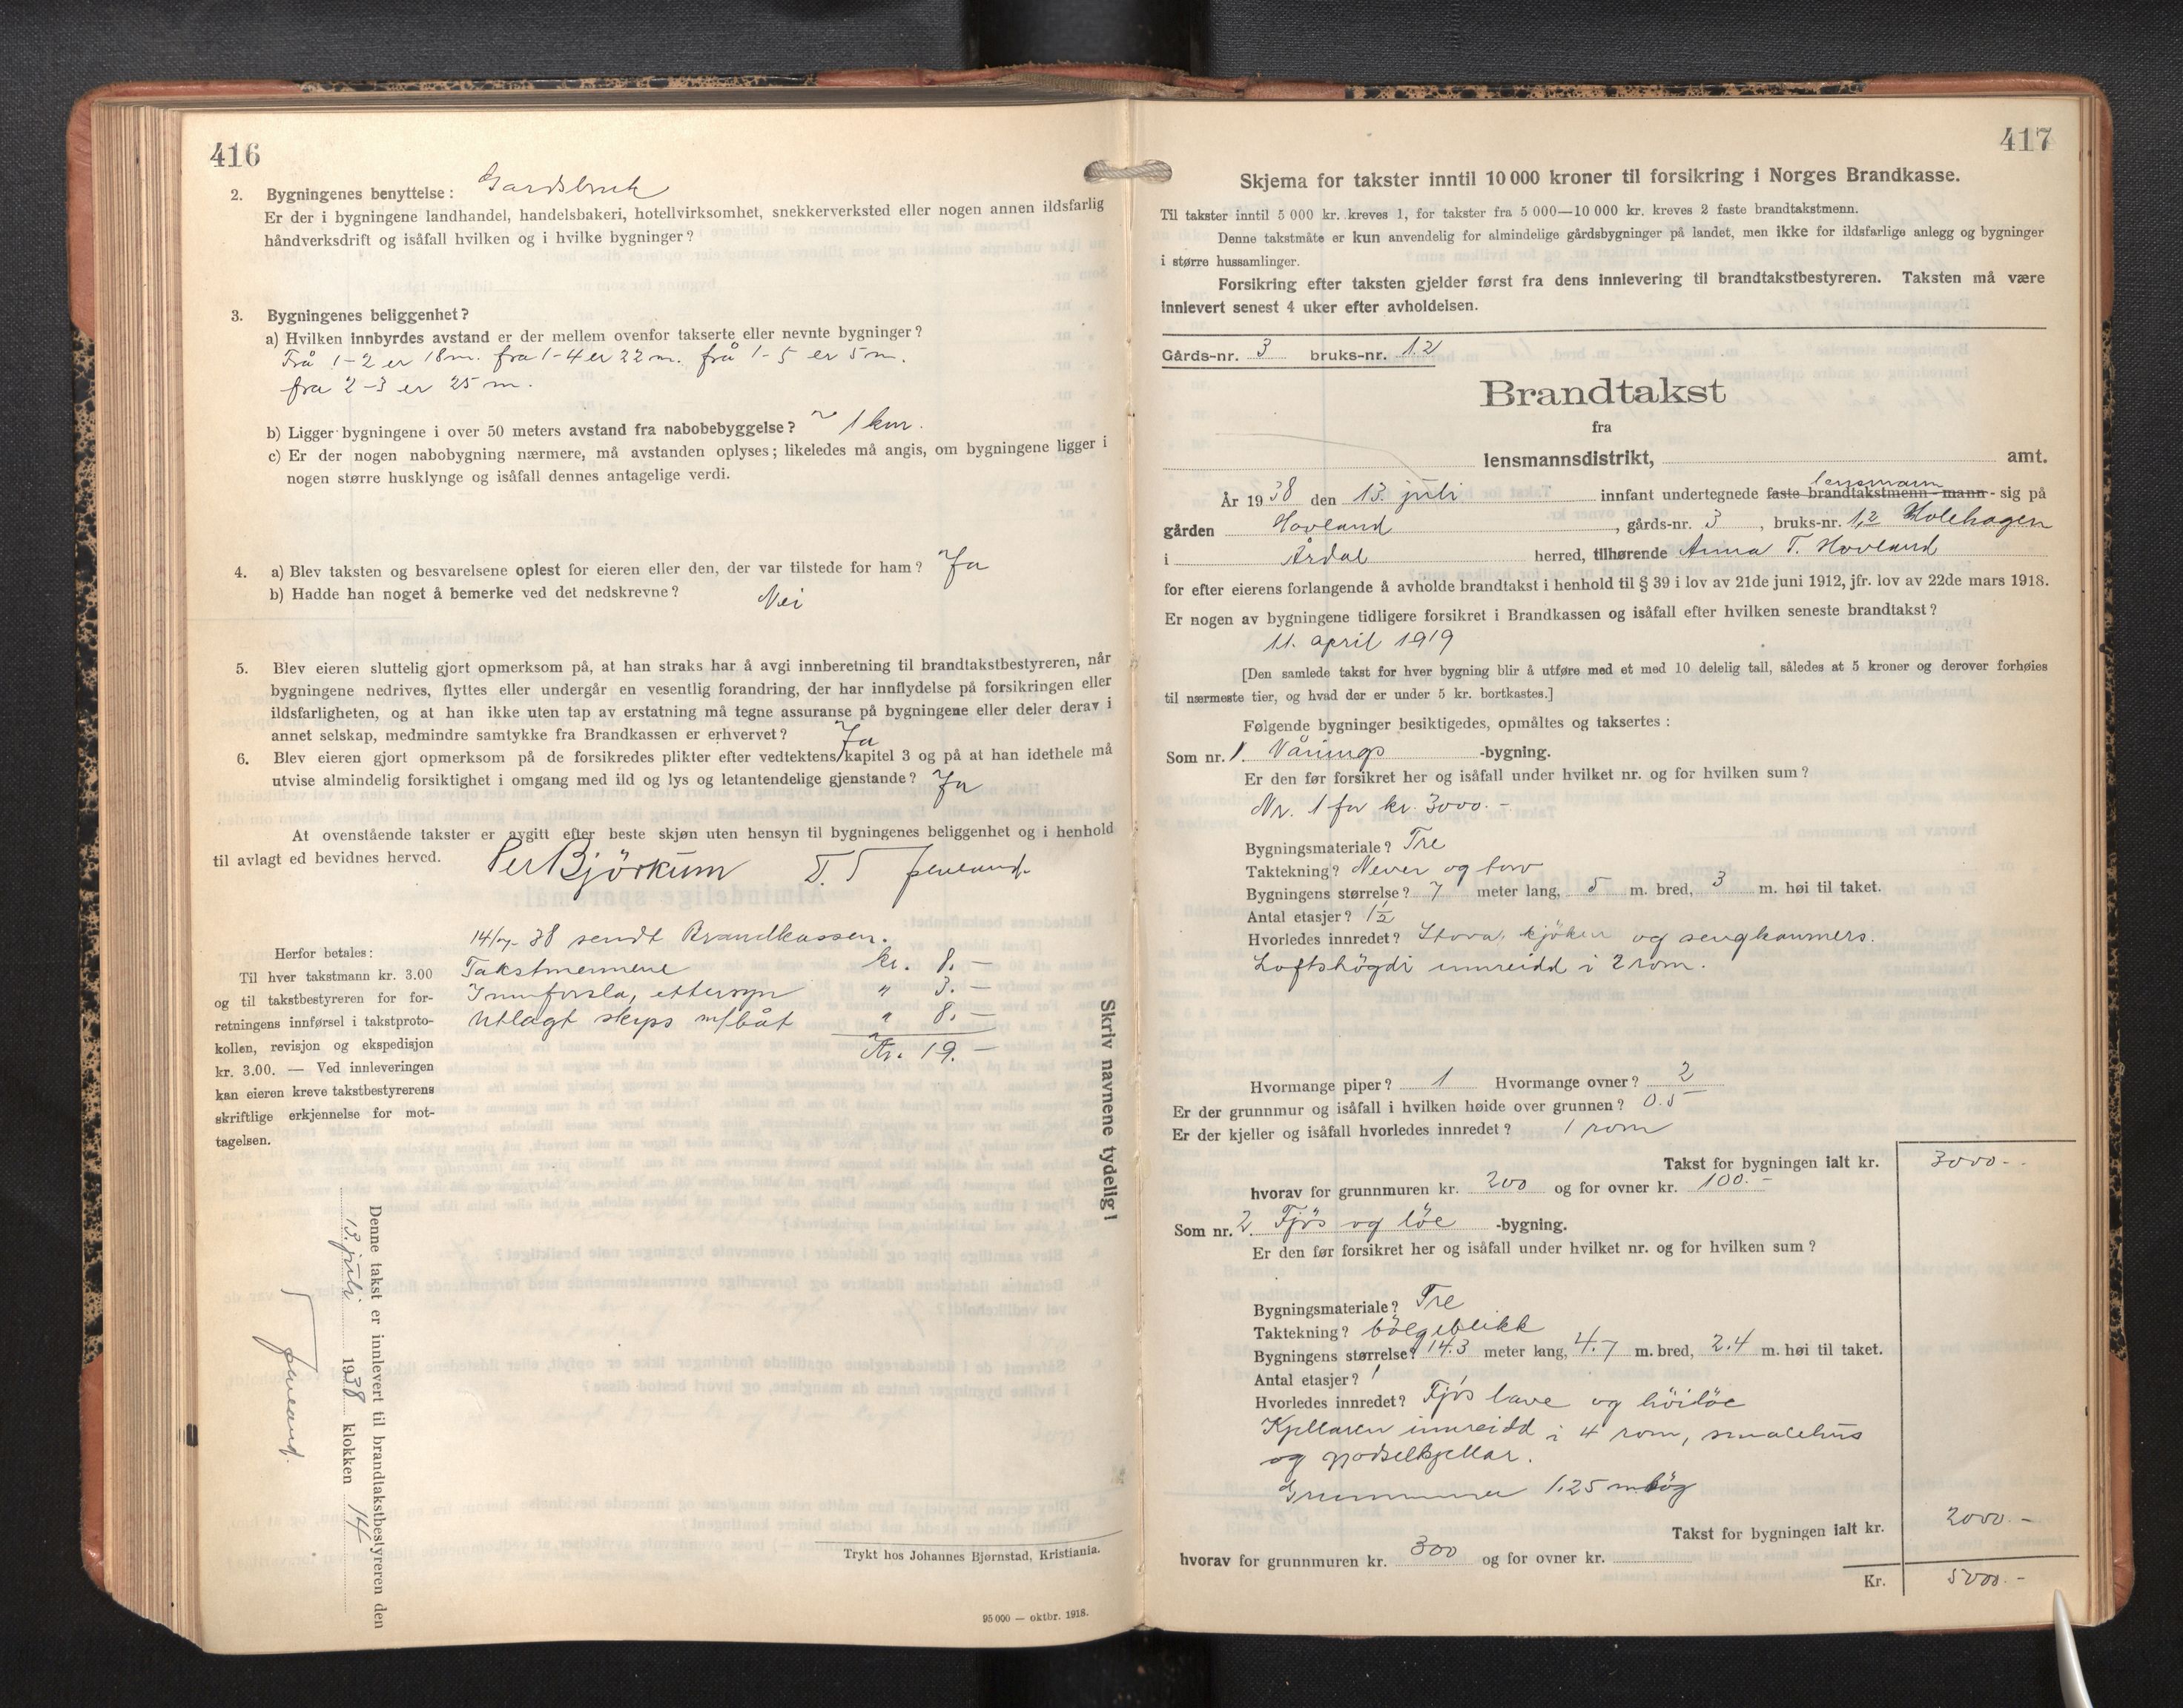 416
2. Bygningenes benyttelse: Gardsbruk
Er der i bygningene landhandel, handelsbakeri, hotellvirksomhet, snekkerverksted eller nogen annen ildsfarlig
håndverksdrift og isåfall hvilken og i hvilke bygninger?
3. Bygningenes beliggenhet?
a) Hvilken innbyrdes avstand er der mellem ovenfor takserte eller nevnte bygninger?
Frå 1-2 er 18 m. fra 1-4 er 22 m. frå 1-5 er 5 m.
fra 2-3 er 25 m.
b) Ligger bygningene i over 50 meters avstand fra nabobebyggelse? ~ 1 km.
c) Er der nogen nabobygning nærmere, må avstanden oplyses; likeledes må angis, om bygningene ligger i
nogen større husklynge og isåfall dennes antagelige verdi.
4. a) Blev taksten og besvarelsene oplest for eieren eller den, der var tilstede for ham? Ja
b) Hadde han noget å bemerke ved det nedskrevne? Nei
5. Blev eieren sluttelig gjort opmerksom på, at han straks har å avgi innberetning til brandtakstbestyreren, når
bygningene nedrives, flyttes eller undergår en vesentlig forandring, der har innflydelse på forsikringen eller
ildsfarligheten, og at han ikke uten tap av erstatning må tegne assuranse på bygningene eller deler derav i
annet selskap, medmindre samtykke fra Brandkassen er erhvervet? Ja
6. Blev eieren gjort opmerksom på de forsikredes plikter efter vedtektens kapitel 3 og på at han idethele må
utvise almindelig forsiktighet i omgang med ild og lys og letantendelige gjenstande? Ja
At ovenstående takster er avgitt efter beste skjøn uten hensyn til bygningenes beliggenhet og i henhold
til avlagt ed bevidnes herved. Per Björkum T. T
14/7-38 sendt Brandkassen.
Herfor betales:
Til hver takstmann kr. 3.00
og til takstbestyreren for for-
retningens innførsel i takstproto-
kollen, revisjon og ekspedisjon
kr. 3.00. — Ved innleveringen
kan eieren kreve takstbestyrerens
skriftlige erkjennelse for mot-
tagelsen.
Takstmennene kr. 8.-
Innforsla, ettersyn " 3.-
Utlagt skyss m/båt " 8.-
Kr. 19.-
Skriv navnene tydelig!
Denne takst er innlevert til brandtakstbestyreren den
13. juli 1938 klokken 14
Trykt hos Johannes Bjørnstad, Kristiania.
95 000 — oktbr. 1918.
417
Skjema for takster inntil 10 000 kroner til forsikring i Norges Brandkasse.
Til takster inntil 5 000 kr. kreves 1, for takster fra 5 000—10 000 kr. kreves 2 faste brandtakstmenn.
Denne takstmåte er kun anvendelig for almindelige gårdsbygninger på landet, men ikke for ildsfarlige anlegg og bygninger
i større hussamlinger.
Forsikring efter taksten gjelder først fra dens innlevering til brandtakstbestyreren. Taksten må være
innlevert senest 4 uker efter avholdelsen.
Gårds-nr. 3 bruks-nr. 12
Brandtakst
fra
lensmannsdistrikt, amt.
lensmann
År 1938 den 13. juli innfant undertegnede faste brandtakstmenn - mann - sig på
gården Hovland, gårds-nr. 3, bruks-nr. 12 Holehagen
i Årdal herred, tilhørende Anna T. Hovland
for efter eierens forlangende å avholde brandtakst i henhold til § 39 i lov av 21de juni 1912, jfr. lov av 22de mars 1918.
Er nogen av bygningene tidligere forsikret i Brandkassen og isåfall efter hvilken seneste brandtakst?
11. april 1919
[Den samlede takst for hver bygning blir å utføre med et med 10 delelig tall, således at 5 kroner og derover forhøies
til nærmeste tier, og hvad der er under 5 kr. bortkastes.]
Følgende bygninger besiktigedes, opmåltes og taksertes:
Som nr. 1. Vånings -bygning.
Er den før forsikret her og isåfall under hvilket nr. og for hvilken sum?
Nr. 1 for kr. 3000.-
Bygningsmateriale? Tre
Taktekning? Never og torv
Bygningens størrelse? 7 meter lang, 5 m. bred, 3 m. høi til taket.
Antal etasjer? 1½
Hvorledes innredet? Stova, kjöken og sengkammers.
Loftshögdi innreidd i 2 rom.
Hvormange piper? 1 Hvormange ovner? 2
Er der grunnmur og isåfall i hvilken høide over grunnen? 0.5
Er der kjeller og isåfall hvorledes innredet? 1 rom
Takst for bygningen ialt kr. 3000.-
hvorav for grunnmuren kr. 200 og for ovner kr. 100.-
Som nr. 2. Fjös og löe -bygning.
Er den før forsikret her og isåfall under hvilket nr. og for hvilken sum?
Bygningsmateriale? Tre
Taktekning? bölgeblikk
Bygningens størrelse? 14.3 meter lang, 4.7 m. bred, 2.4 m. høi til taket.
Antal etasjer? 1
Hvorledes innredet? Fjös lave og höilöe
Kjellaren innreidd i 4 rom, smalehus
og gjödselkjellar.
Grunnmur 1.25 m hög
Takst for bygningen ialt kr. 2000.-
hvorav for grunnmuren kr. 300 og for ovner kr.
Kr. 5000.-